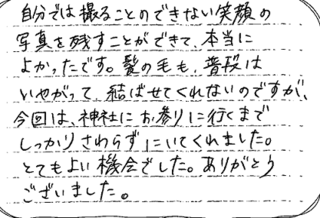 自分では撮ることのできない笑顔の
写真を残すことができて、本当に
よかったです。髪の毛も、普段は
いやがって、結ばせてくれないのですが、
今回は、神社にお参りに行くまで
しっかりさわらずにいてくれました。
とてもよい機会でした。ありがとう
ございました。